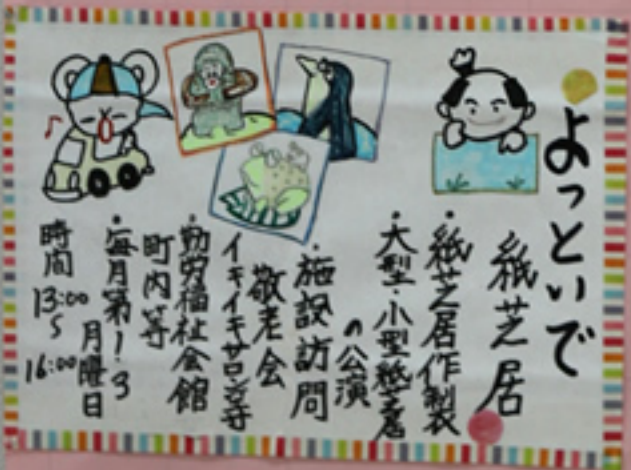 よっといで
紙芝居
・紙芝居作製
・大型・小型紙芝居
の公演
・施設訪問
敬老会
イキイキサロン等
・勤労福祉会館
町内等
・毎月第1.3
月曜日
時間
13:00
〜
16:00